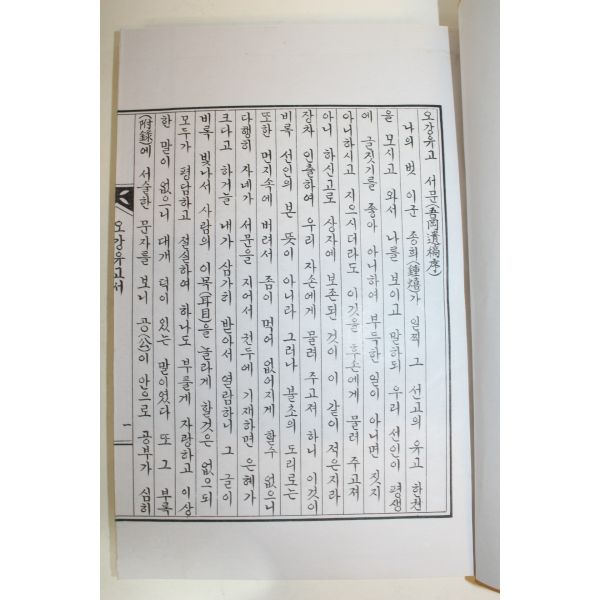 오강유고 서문(吾岡遺稿序)
나의 벗 이군 종희(鍾熺)가 일찍 그 선고의 유고 한천
을 모시고 와서 나를 보이고 말하되 우리 선인이 평생
에 글짓기를 좋아 아니하여 부득한 일이 아니면 짓지
아니하시고 지으시더라도 이것을 후손에게 물려 주고져
아니 하신고로 상자에 보존된 것이 이 같이 적은지라
장차 인출하여 우리 자손에게 물려 주고져 하니 이것이
비록 선인의 본 뜻이 아니라 그러나 불초의 도리로는
또한 먼지속에 버려서 좀이 먹어 없어지게 할수 없으니
다행히 자네가 서문을 지어서 천두에 기재하면 은혜가
크다고 하거늘 내가 삼가히 받아서 열람하니 그 글이
비록 빛나서 사람의 이목(耳目)을 놀라게 할것은 없으되
모두가 평담하고 설실하여 하나도 부를게 자랑하고 이상
한 말이 없으니 대개 덕이 있는 말이였다 또 그 부록
(附錄)에 서술한 문자를 보니 공(公)이 안으로 공부가 심히
오강유고서
一